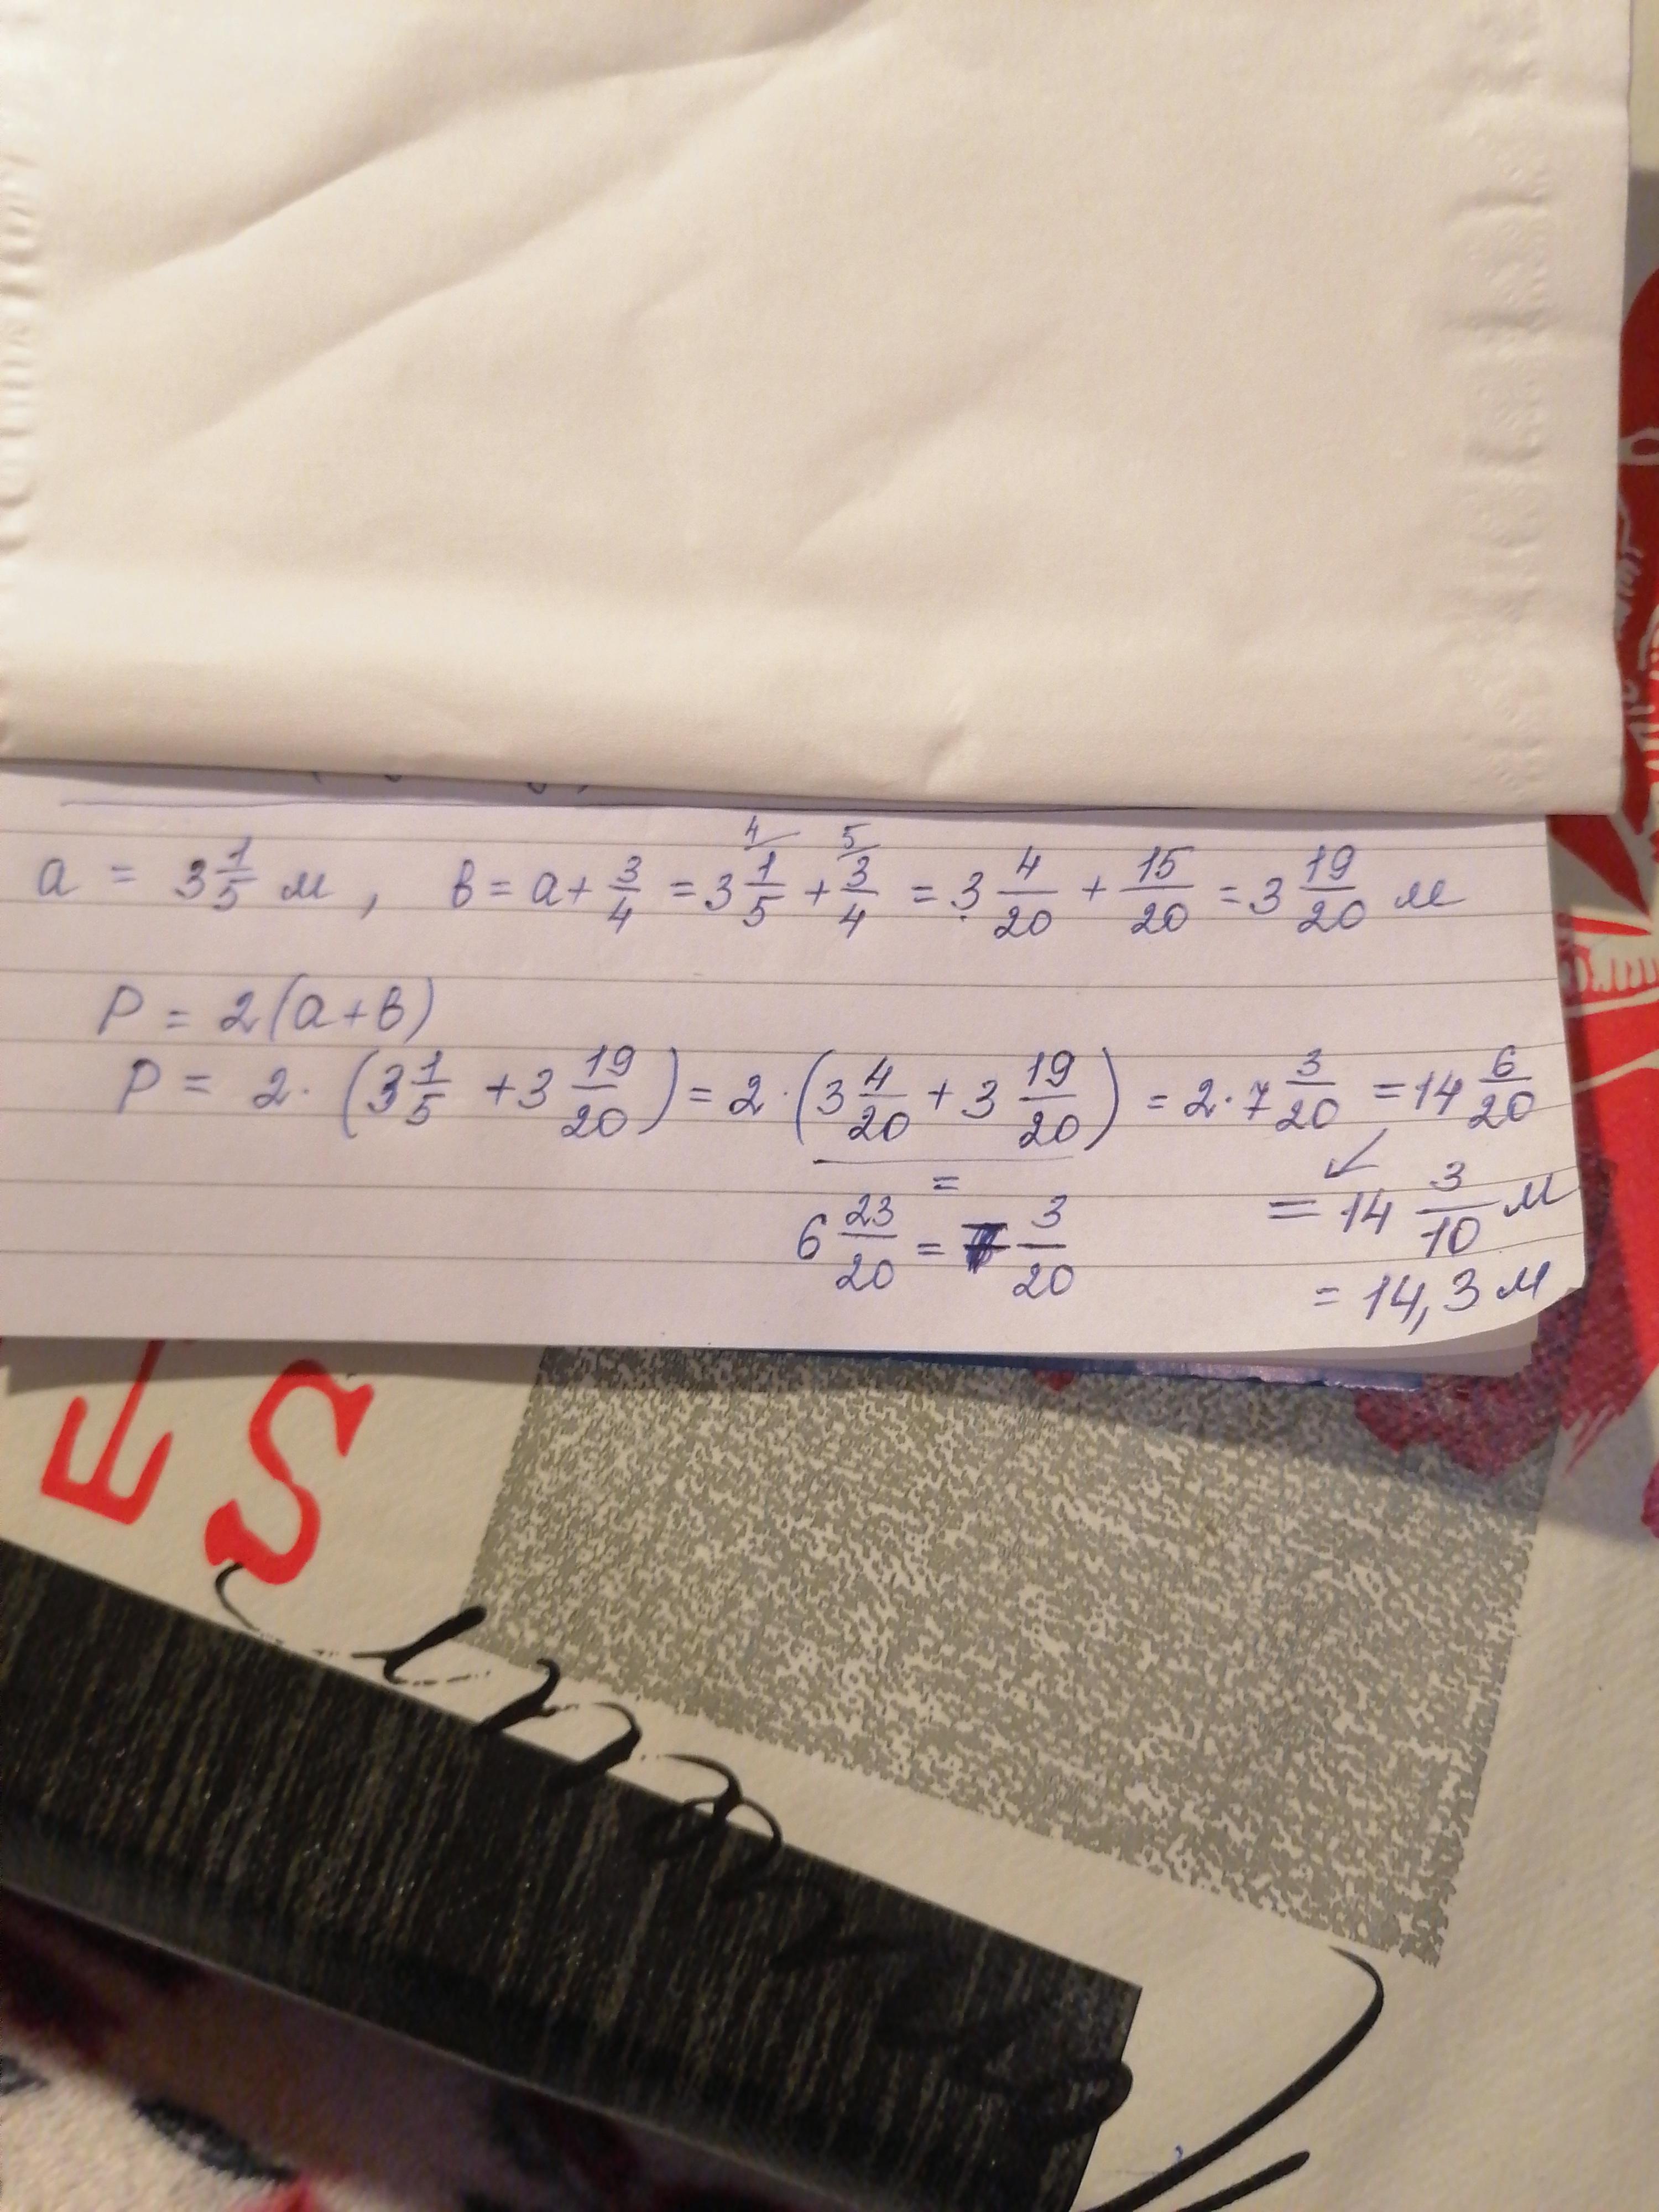 a = 3 1/5 м, в = a + 3/4 = 3 1/5 (4 + 3/4 (5 = 3 4/20 + 15/20 = 3 19/20 м
P = 2(a+в)
P = 2 · (3 1/5 + 3 19/20) = 2 · (3 4/20 + 3 19/20) = 2 · 7 3/20 = 14 6/20
= 6 23/20 = 7 3/20
= 14 3/10 м
= 14,3 м
ES